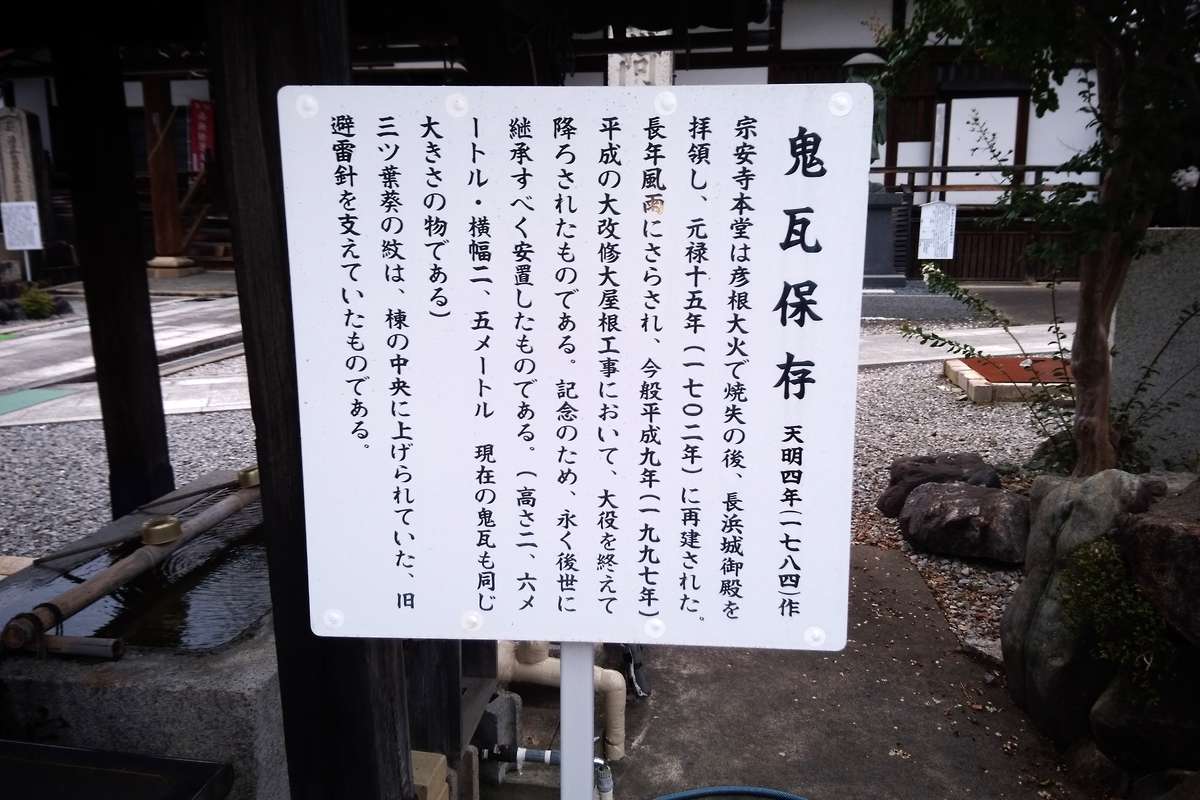 鬼瓦保存 天明四年(一七八四)作
宗安寺本堂は彦根大火で焼失の後、長浜城御殿を
拝領し、元禄十五年(一七〇二年)に再建された。
長年風雨にさらされ、今般平成九年(一九九七年)
平成の大改修大屋根工事において、大役を終えて
降ろされたものである。記念のため、永く後世に
継承すべく安置したものである。(高さ二、六メ
ートル・横幅二、五メートル 現在の鬼瓦も同じ
大きさの物である)
三ツ葉葵の紋は、棟の中央に上げられていた、旧
避雷針を支えていたものである。